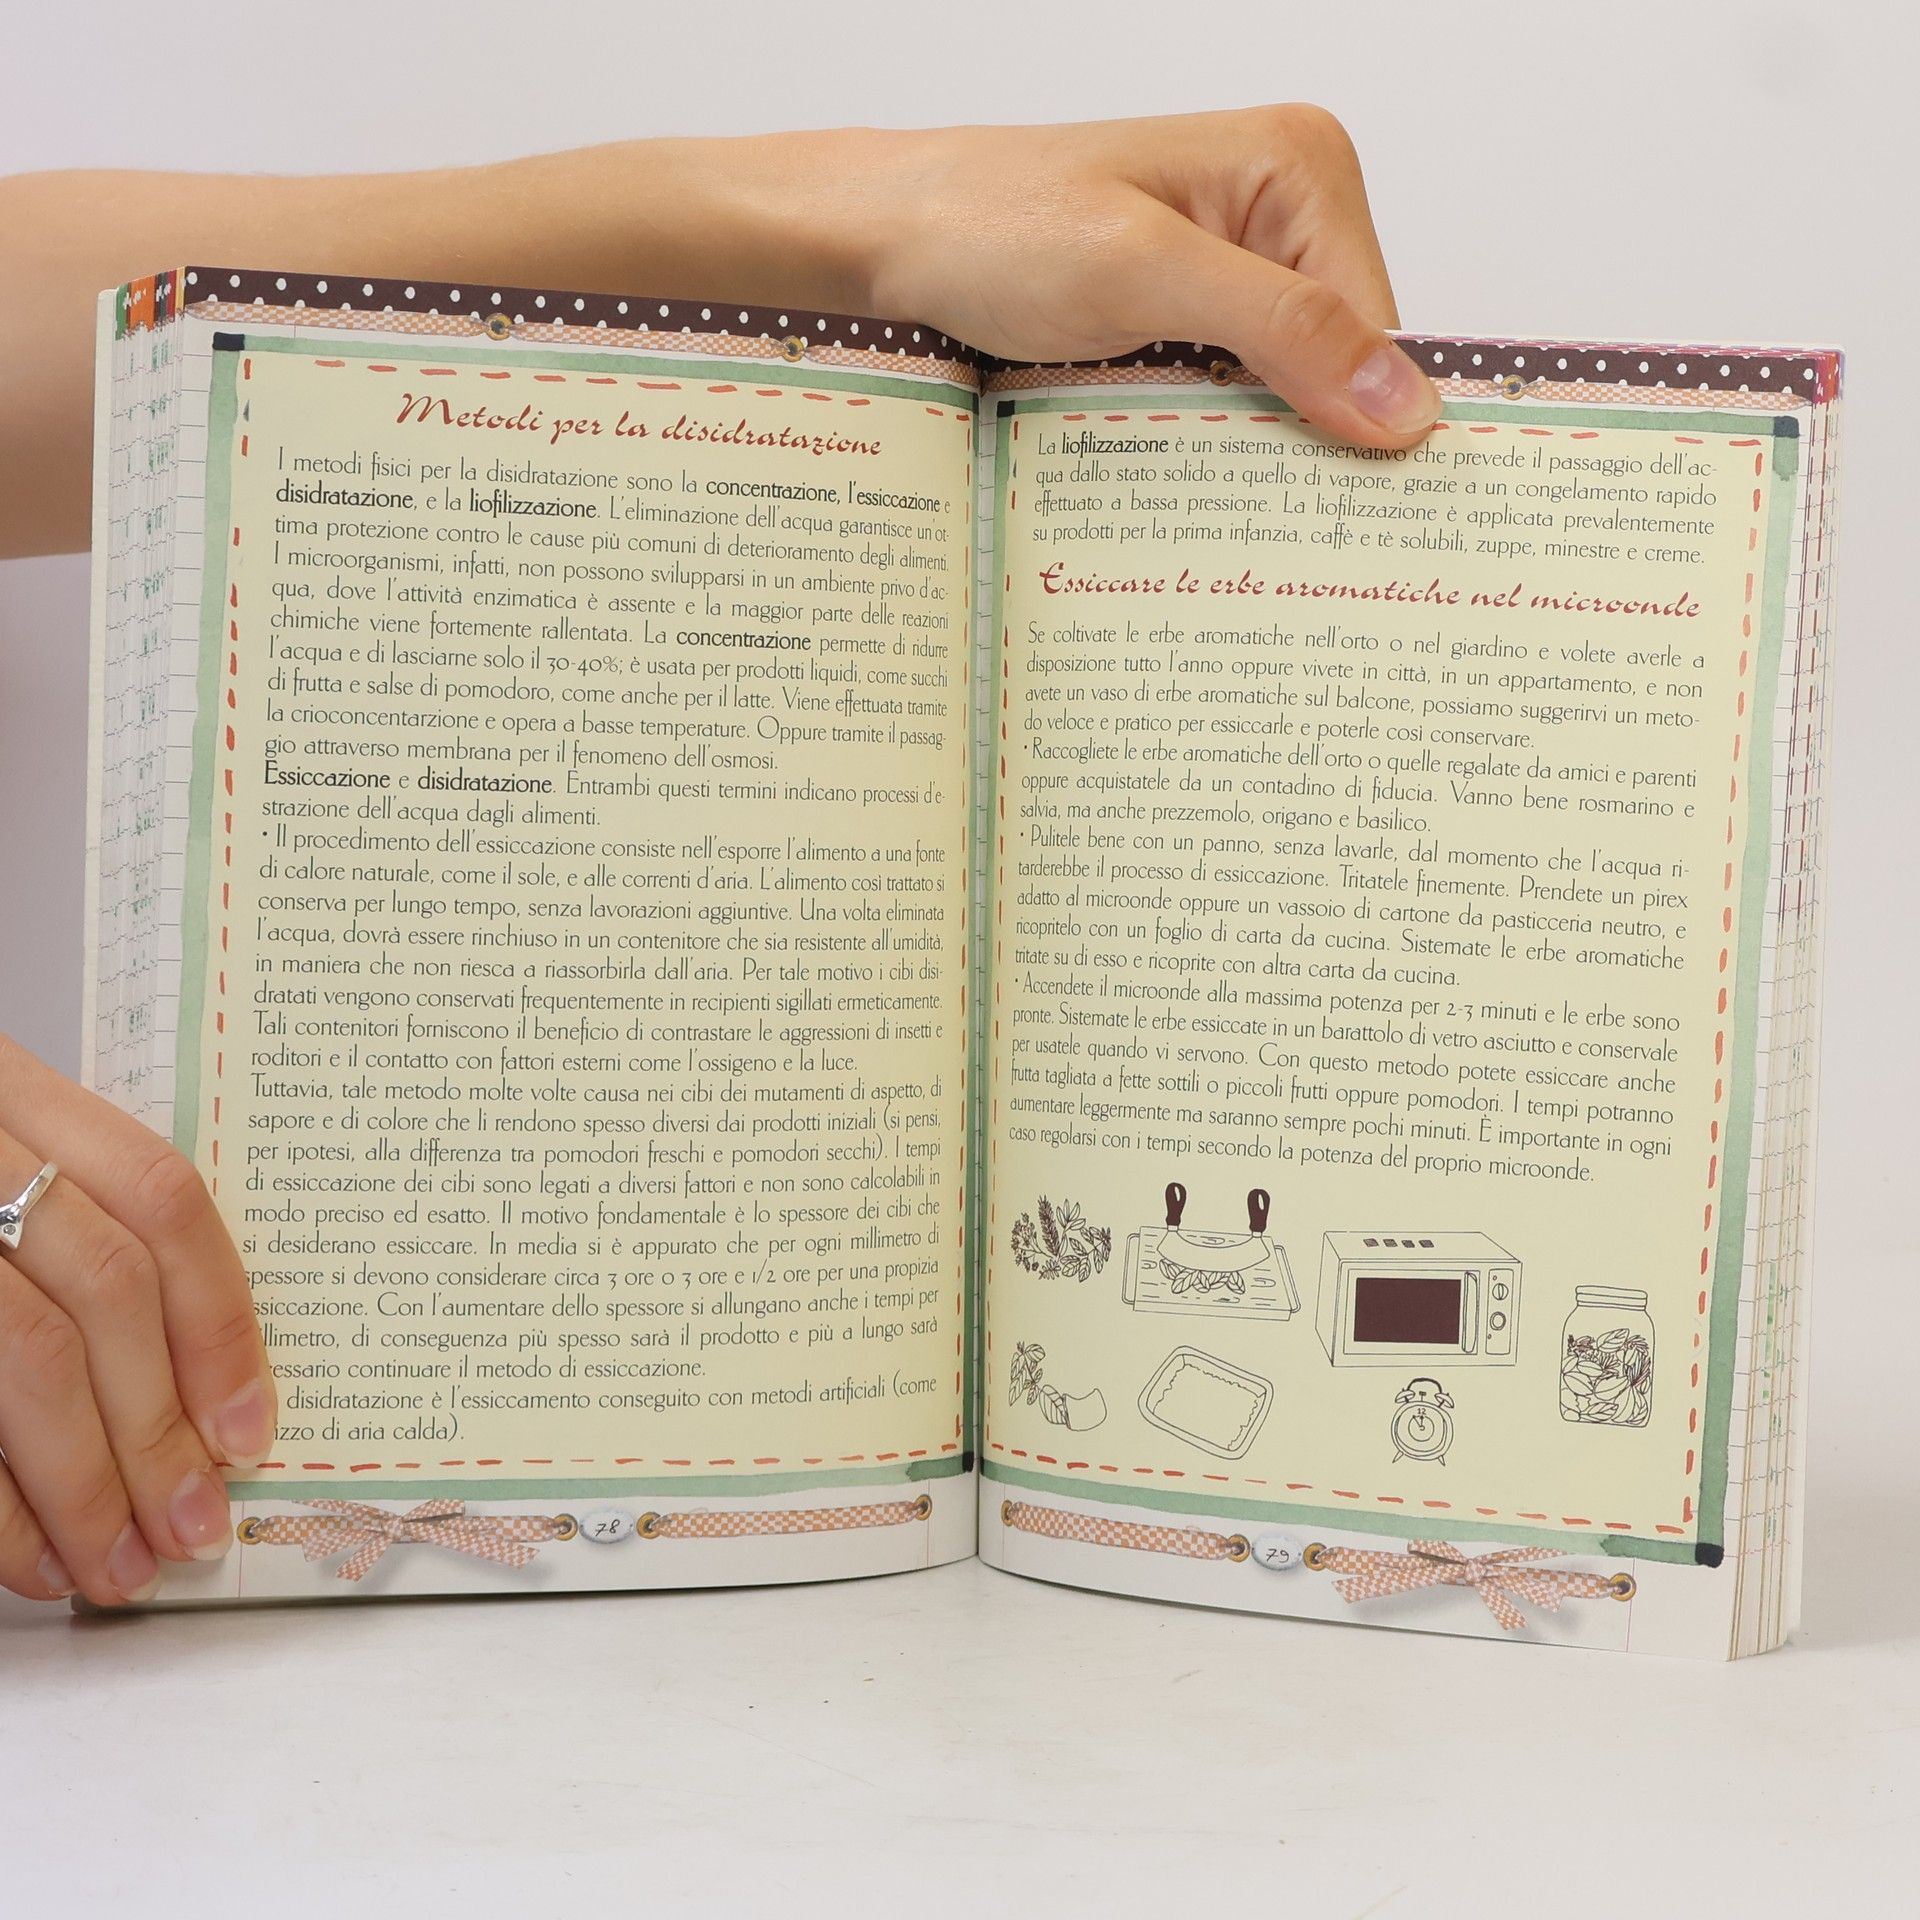 Metodi per la disidratazione
I metodi fisici per la disidratazione sono la concentrazione, l'essiccazione e
disidratazione, e la liofilizzazione. L'eliminazione dell'acqua garantisce un'ot-
tima protezione contro le cause più comuni di deterioramento degli alimenti.
I microorganismi, infatti, non possono svilupparsi in un ambiente privo d'ac-
qua, dove l'attività enzimatica è assente e la maggior parte delle reazioni
chimiche viene fortemente rallentata. La concentrazione permette di ridurre
l'acqua e di lasciarne solo il 30-40%; è usata per prodotti liquidi, come succhi
di frutta e salse di pomodoro, come anche per il latte. Viene effettuata tramite
la crioconcentarzione e opera a basse temperature. Oppure tramite il passag-
gio attraverso membrana per il fenomeno dell'osmosi.
Essiccazione e disidratazione. Entrambi questi termini indicano processi d'e-
strazione dell'acqua dagli alimenti.
• Il procedimento dell'essiccazione consiste nell'esporre l'alimento a una fonte
di calore naturale, come il sole, e alle correnti d'aria. L'alimento così trattato si
conserva per lungo tempo, senza lavorazioni aggiuntive. Una volta eliminata
l'acqua, dovrà essere rinchiuso in un contenitore che sia resistente all'umidità,
in maniera che non riesca a riassorbirla dall'aria. Per tale motivo i cibi disi-
dratati vengono conservati frequentemente in recipienti sigillati ermeticamente.
Tali contenitori forniscono il beneficio di contrastare le aggressioni di insetti e
roditori e il contatto con fattori esterni come l'ossigeno e la luce.
Tuttavia, tale metodo molte volte causa nei cibi dei mutamenti di aspetto, di
sapore e di colore che li rendono spesso diversi dai prodotti iniziali (si pensi,
per ipotesi, alla differenza tra pomodori freschi e pomodori secchi). I tempi
di essiccazione dei cibi sono legati a diversi fattori e non sono calcolabili in
modo preciso ed esatto. Il motivo fondamentale è lo spessore dei cibi che
si desiderano essiccare. In media si è appurato che per ogni millimetro di
spessore si devono considerare circa 3 ore o 3 ore e 1/2 ore per una propizia
ssiccazione. Con l'aumentare dello spessore si allungano anche i tempi per
llimetro, di conseguenza più spesso sarà il prodotto e più a lungo sarà
essario continuare il metodo di essiccazione.
disidratazione è l'essiccamento conseguito con metodi artificiali (come
izzo di aria calda).
78
La liofilizzazione è un sistema conservativo che prevede il passaggio dell'ac-
qua dallo stato solido a quello di vapore, grazie a un congelamento rapido
effettuato a bassa pressione. La liofilizzazione è applicata prevalentemente
su prodotti per la prima infanzia, caffè e tè solubili, zuppe, minestre e creme.
Essiccare le erbe aromatiche nel microonde
Se coltivate le erbe aromatiche nell'orto o nel giardino e volete averle a
disposizione tutto l'anno oppure vivete in città, in un appartamento, e non
avete un vaso di erbe aromatiche sul balcone, possiamo suggerirvi un meto-
do veloce e pratico per essiccarle e poterle così conservare.
• Raccogliete le erbe aromatiche dell'orto o quelle regalate da amici e parenti
oppure acquistatele da un contadino di fiducia. Vanno bene rosmarino e
salvia, ma anche prezzemolo, origano e basilico.
• Pulitele bene con un panno, senza lavarle, dal momento che l'acqua ri-
tarderebbe il processo di essiccazione. Tritatele finemente. Prendete un pirex
adatto al microonde oppure un vassoio di cartone da pasticceria neutro, e
ricopritelo con un foglio di carta da cucina. Sistemate le erbe aromatiche
tritate su di esso e ricoprite con altra carta da cucina.
• Accendete il microonde alla massima potenza per 2-3 minuti e le erbe sono
pronte. Sistemate le erbe essiccate in un barattolo di vetro asciutto e conservale
per usatele quando vi servono. Con questo metodo potete essiccare anche
frutta tagliata a fette sottili o piccoli frutti oppure pomodori. I tempi potranno
aumentare leggermente ma saranno sempre pochi minuti. È importante in ogni
caso regolarsi con i tempi secondo la potenza del proprio microonde.
12
79